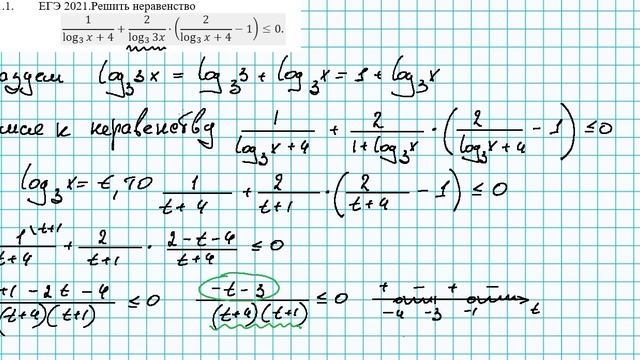 .1. ЕГЭ 2021.Решить неравенство
1/(log₃ x + 4) + 2/(log₃ 3x) · (2/(log₃ x + 4) − 1) ≤ 0.
log₃3x = log₃3 + log₃x = 1 + log₃x
к неравенству 1/(log₃x + 4) + 2/(1 + log₃x) · (2/(log₃x + 4) − 1) ≤ 0
log₃x = t, то 1/(t + 4) + 2/(t + 1) · (2/(t + 4) − 1) ≤ 0
1\t+1/(t+4) + 2/(t+1) · (2 − t − 4)/(t + 4) ≤ 0
+1 − 2t − 4/(t+4)(t+1) ≤ 0 (−t − 3)/((t+4)(t+1)) ≤ 0 + − + − −4 −3 −1 t